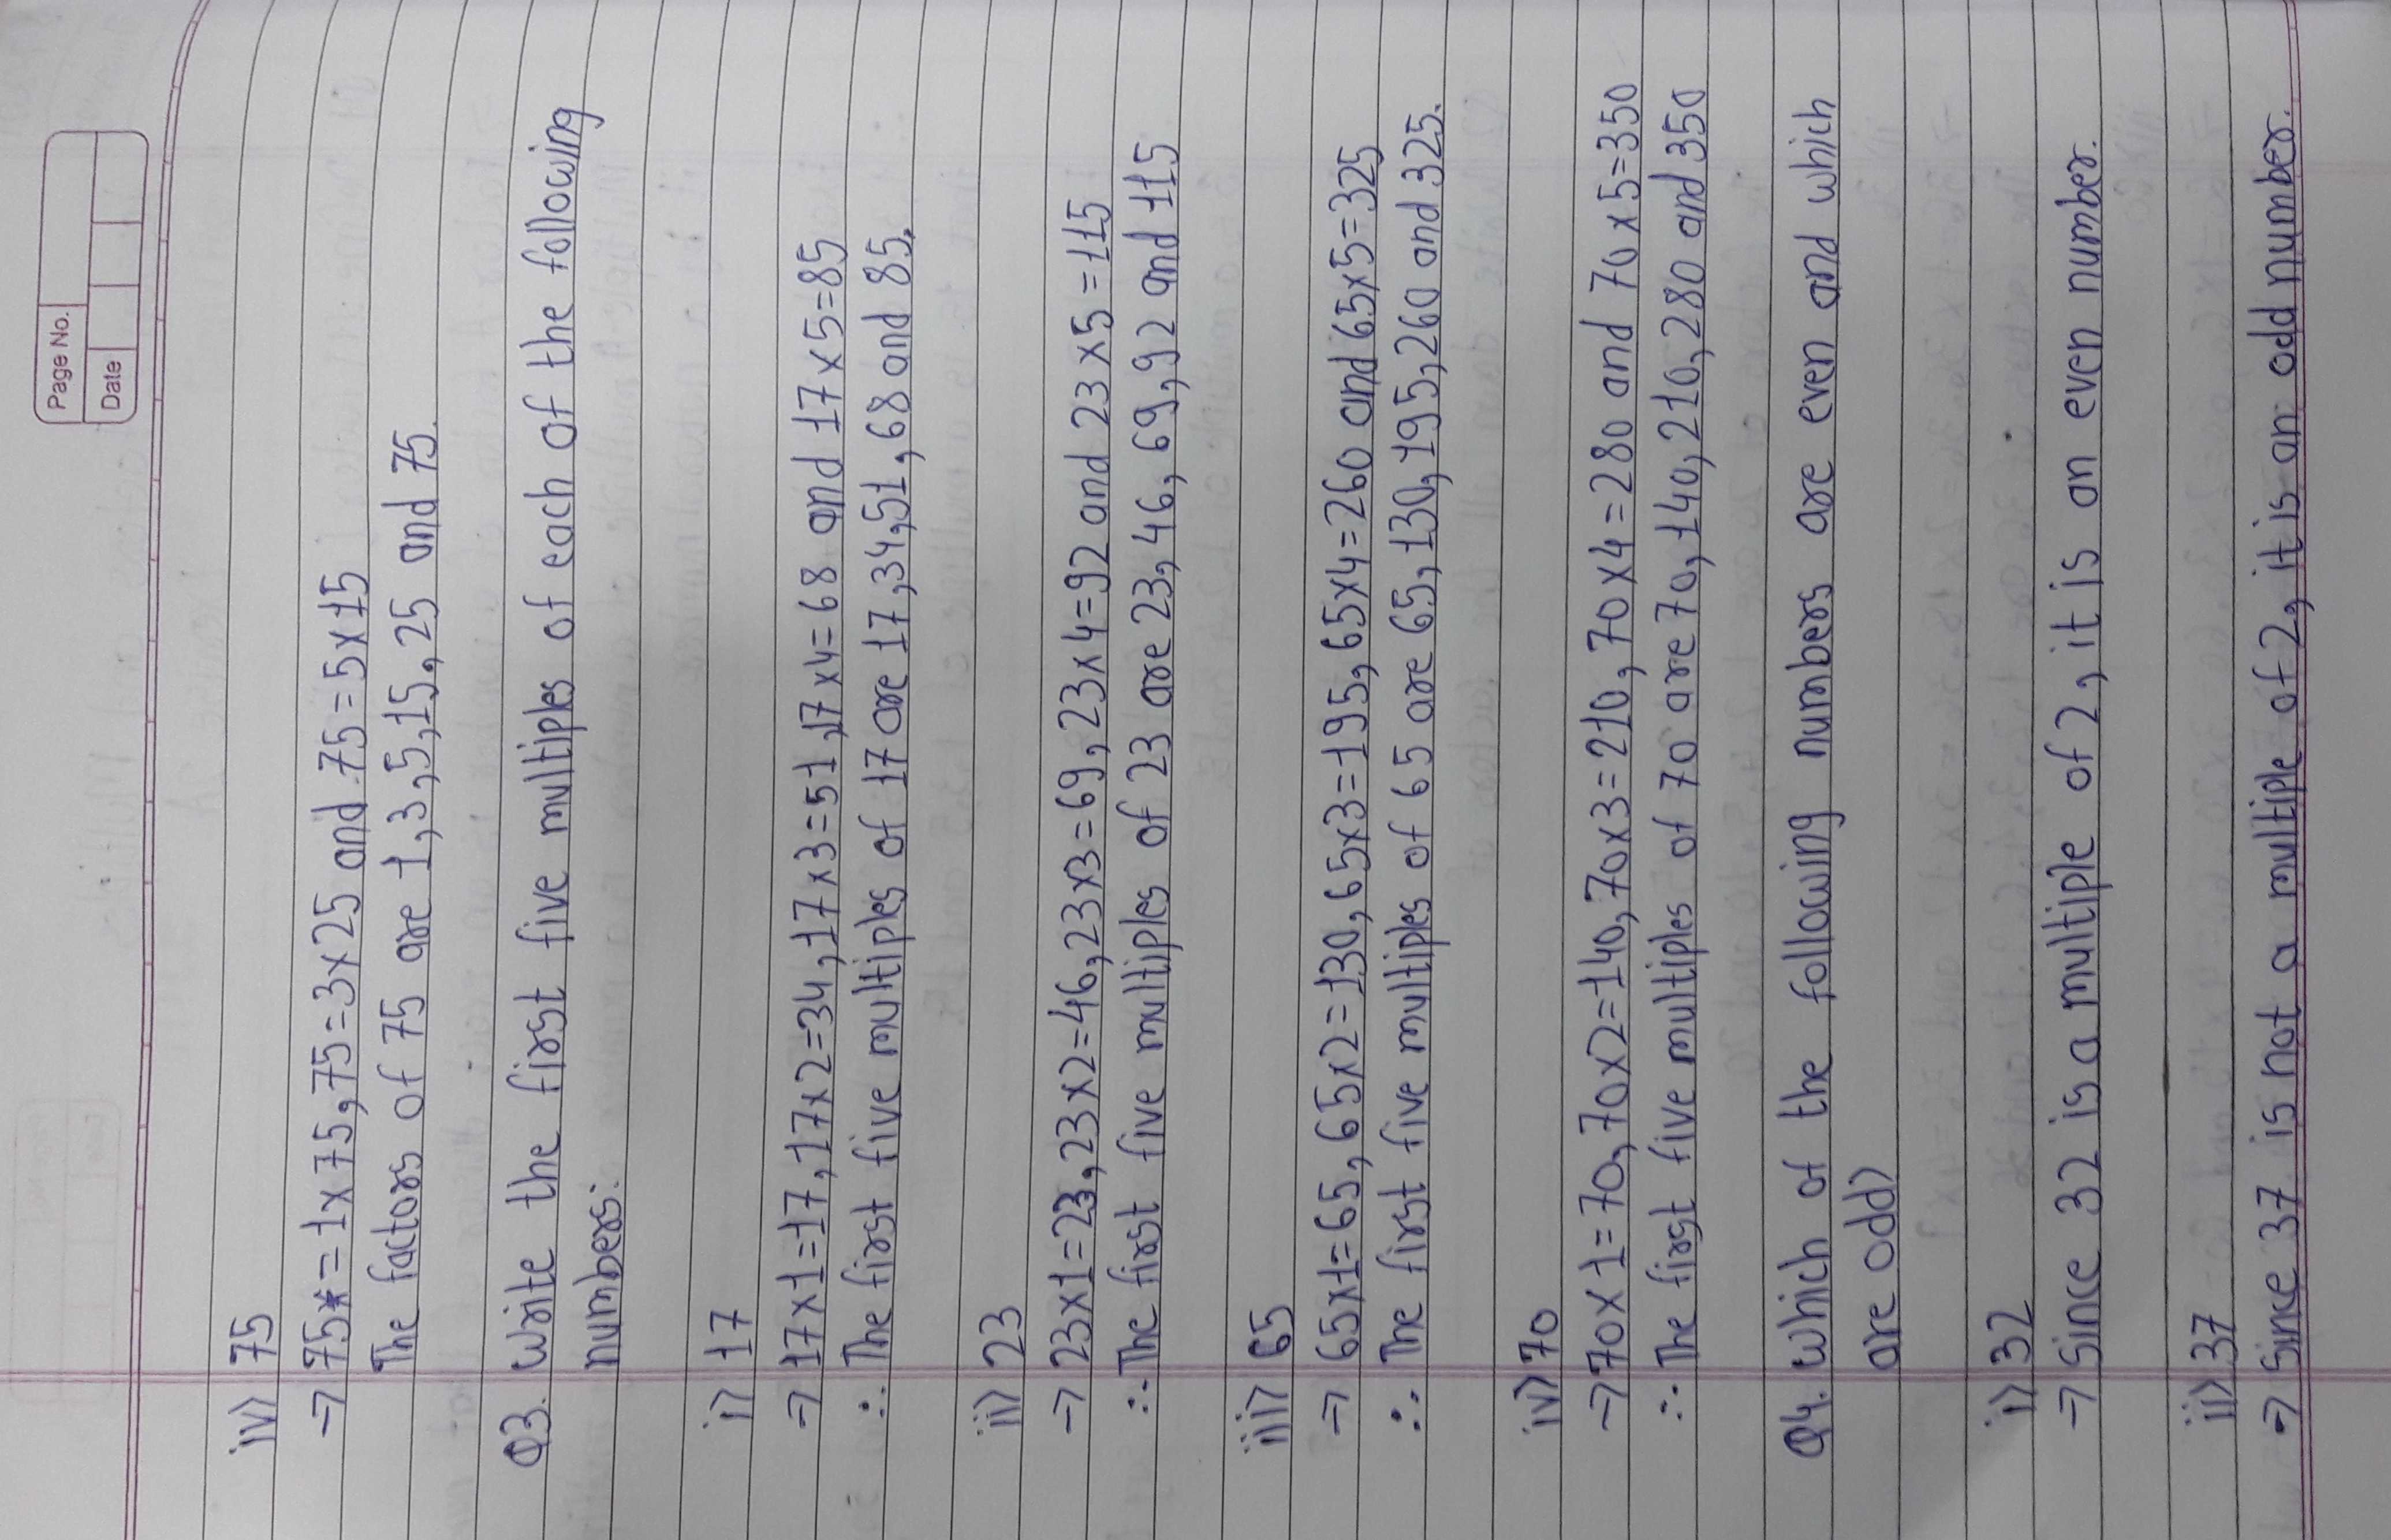 Page No.
Date
iv) 75
→ 75* = 1x75, 75=3x25 and 75=5x15
The factors of 75 are 1,3,5,15,25 and 75.
Q3. Write the first five multiples of each of the following
numbers:
i) 17
→ 17x1=17, 17x2=34, 17x3=51, 17x4=68 and 17x5=85
∴ The first five multiples of 17 are 17,34,51,68 and 85.
ii) 23
→ 23x1=23, 23x2=46, 23x3=69, 23x4=92 and 23x5=115
∴ The first five multiples of 23 are 23,46,69,92 and 115
iii) 65
→ 65x1=65, 65x2=130, 65x3=195, 65x4=260 and 65x5=325
∴ The first five multiples of 65 are 65,130,195,260 and 325.
iv) 70
→ 70x1=70, 70x2=140, 70x3=210, 70x4=280 and 70x5=350
∴ The first five multiples of 70 are 70,140,210,280 and 350
Q4. Which of the following numbers are even and which
are odd)
i) 32
→ Since 32 is a multiple of 2, it is an even number.
ii) 37
→ Since 37 is not a multiple of 2, it is an odd number.